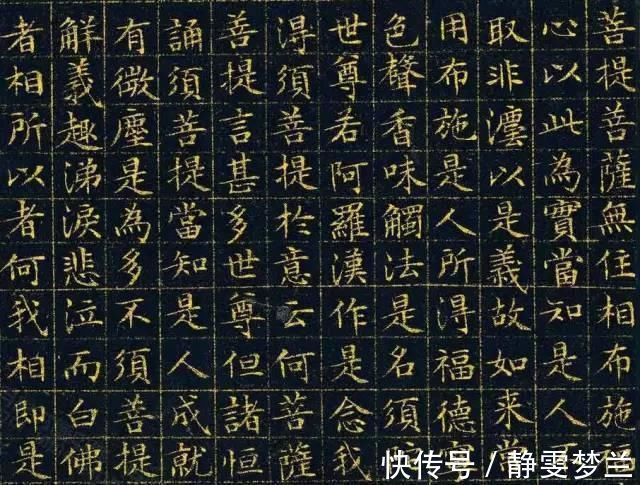 菩提菩薩無住相布施福
心以此為實當知是人
取非灋以是義故如来常
用布施是人所淂福德
色聲香味觸法是名須
世尊若阿羅漢作是念我
淂須菩提於意云何菩薩
菩提言甚多世尊但諸恒
誦須菩提當知是人成就
有微塵是為多不須菩提
解義趣涕淚悲泣而白佛
者相所以者何我相即是
快传号/静雯梦兰